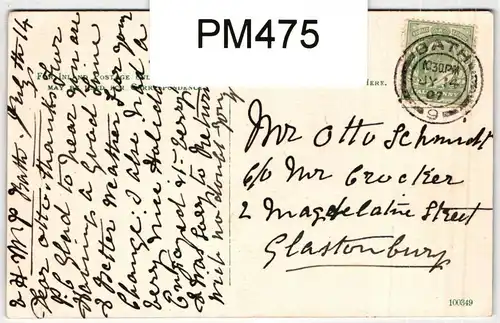 PM475
FOR INLAND POSTAGE ONLY
MAY BE USED FOR CORRESPONDENCE
HERE.
BATH
10.30PM
JY 14
07
9
Mr Otto Schmidt
c/o Mr Crocker
2 Magdelaine Street
Glastonbury
Bath. July 14
Dear Otto. thanks for
p.c Glad to hear you are
having a Good time
& Better weather for your
Change is also had a
very nice Holiday
Enjoyed it very
& was sorry to return
with no doubt you
100349